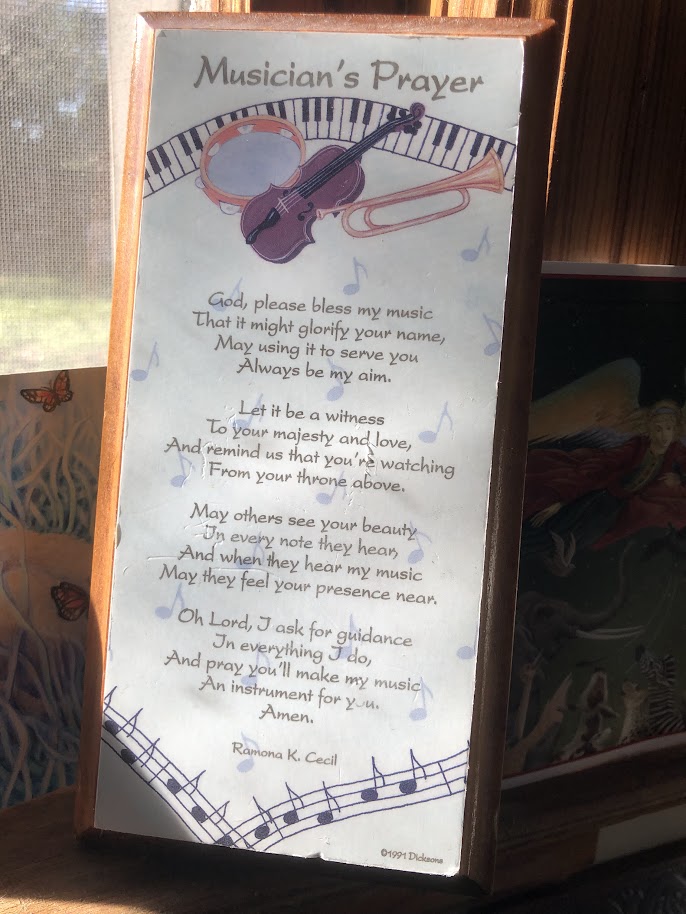 Musician's Prayer
God, please bless my music
That it might glorify your name,
May using it to serve you
Always be my aim.
Let it be a witness
To your majesty and love,
And remind us that you're watching
From your throne above.
May others see your beauty
In every note they hear,
And when they hear my music
May they feel your presence near.
Oh Lord, I ask for guidance
In everything I do,
And pray you'll make my music
An instrument for you.
Amen.
Ramona K. Cecil
©1991 Dicksons